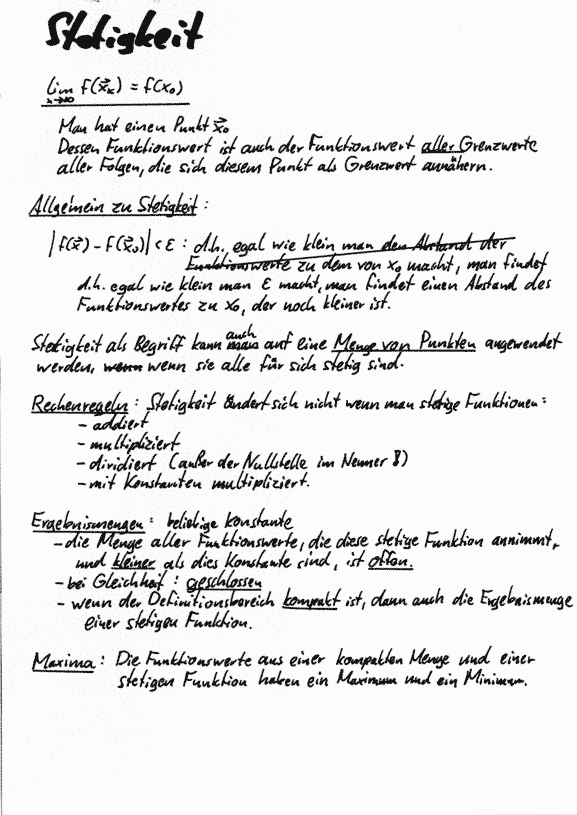 Stetigkeit
lim f(x⃗ₖ) = f(x₀)
x→∞
Man hat einen Punkt x⃗₀
Dessen Funktionswert ist auch der Funktionswert aller Grenzwerte
aller Folgen, die sich diesem Punkt als Grenzwert annähern.
Allgemein zu Stetigkeit:
|f(x⃗) - f(x⃗₀)| < ε : d.h. egal wie klein man den Abstand der
Funktionswerte zu dem von x₀ macht, man findet
d.h. egal wie klein man ε macht, man findet einen Abstand des
Funktionswertes zu x₀, der noch kleiner ist.
Stetigkeit als Begriff kann auch auf eine Menge von Punkten angewendet
werden, wenn wenn sie alle für sich stetig sind.
Rechenregeln: Stetigkeit ändert sich nicht wenn man stetige Funktionen:
- addiert
- multipliziert
- dividiert (außer der Nullstelle im Nenner!)
- mit Konstanten multipliziert.
Ergebnismengen: beliebige Konstante
- die Menge aller Funktionswerte, die diese stetige Funktion annimmt,
und kleiner als dies Konstante sind, ist offen.
- bei Gleichheit: geschlossen
- wenn der Definitionsbereich kompakt ist, dann auch die Ergebnismenge
einer stetigen Funktion.
Maxima: Die Funktionswerte aus einer kompakten Menge und einer
stetigen Funktion haben ein Maximum und ein Minimum.